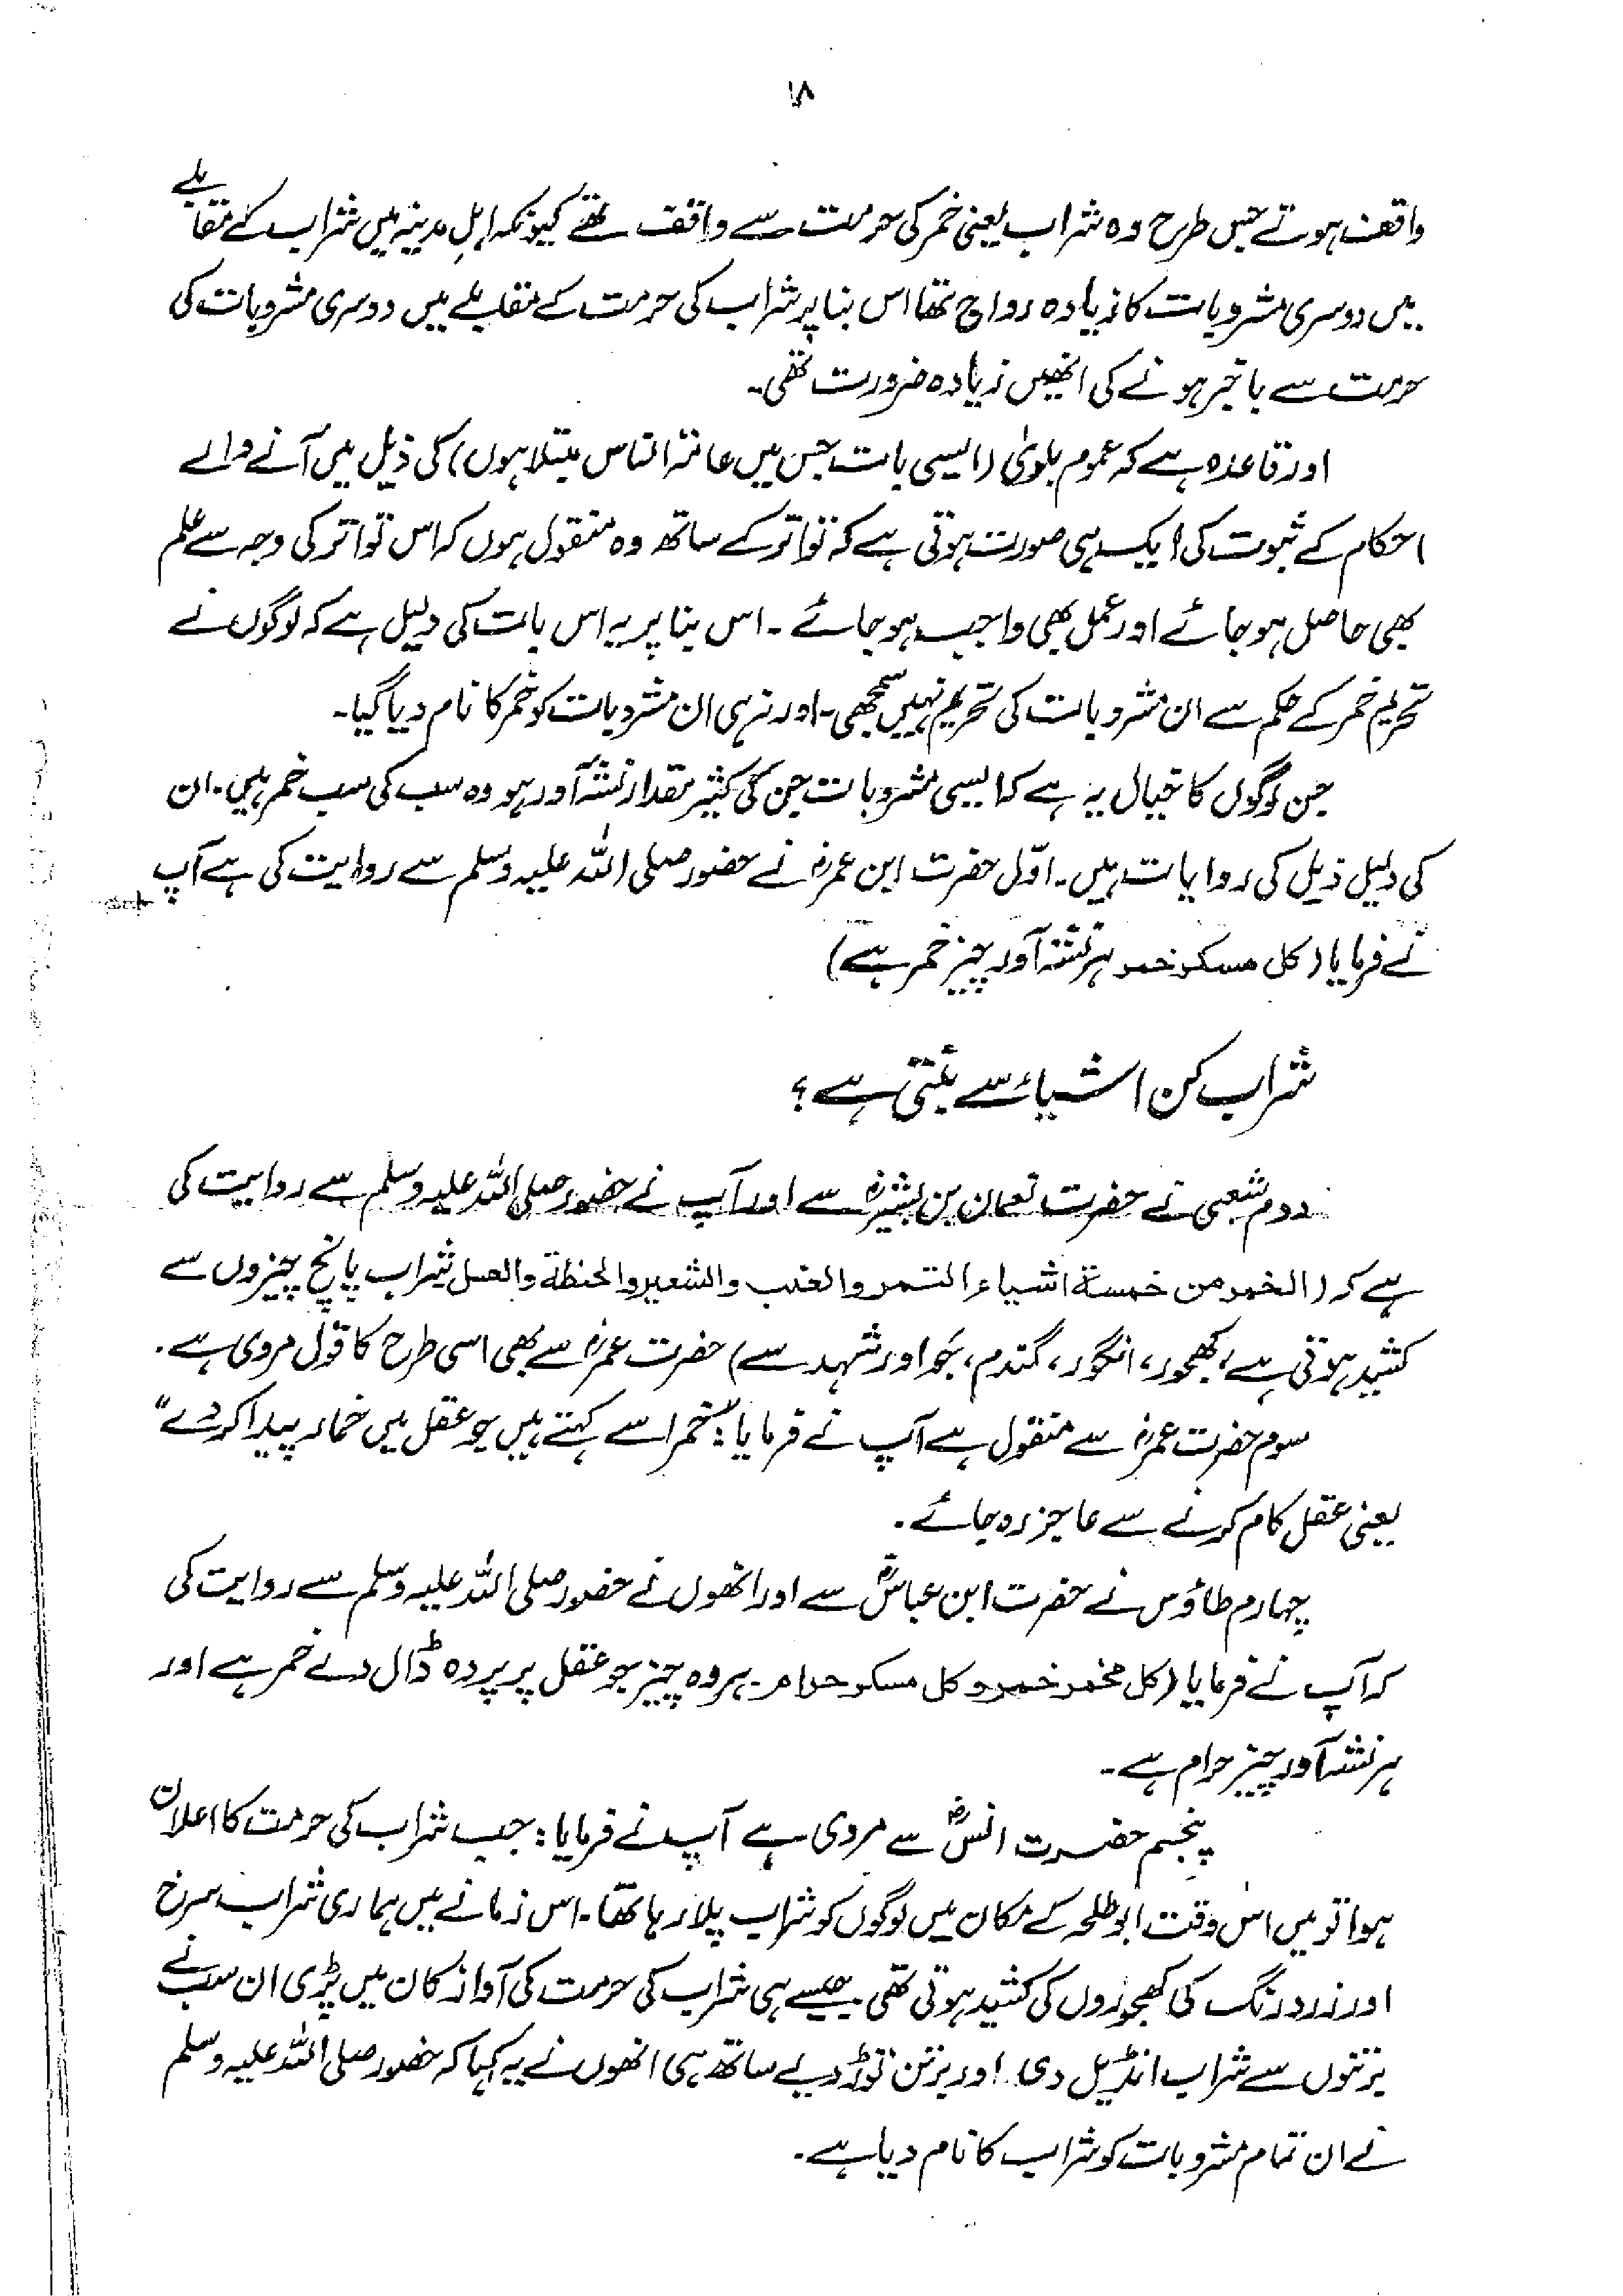 ۱۸
واقف ہوتے جس طرح وہ شراب یعنی خمر کی حرمت سے واقف تھے کیونکہ اہلِ مدینہ میں شراب کے مقابلے
میں دوسری مشروبات کا زیادہ رواج تھا اس بنا پر شراب کی حرمت کے مقابلے میں دوسری مشروبات کی
حرمت سے باخبر ہونے کی انھیں زیادہ ضرورت تھی۔
اور قاعدہ ہے کہ عموم بلویٰ (ایسی بات جس میں عامۃ الناس مبتلا ہوں) کی ذیل میں آنے والے
احکام کے ثبوت کی ایک ہی صورت ہوتی ہے کہ تواتر کے ساتھ وہ منقول ہوں کہ اس تواتر کی وجہ سے علم
بھی حاصل ہو جائے اور عمل بھی واجب ہو جائے ۔ اس بنا پر یہ اس بات کی دلیل ہے کہ لوگوں نے
تحریم خمر کے حکم سے ان مشروبات کی تحریم نہیں سمجھی۔ اور نہ ہی ان مشروبات کو خمر کا نام دیا گیا۔
جن لوگوں کا خیال یہ ہے کہ ایسی مشروبات جن کی کثیر مقدار نشہ آور ہو وہ سب کی سب خمر ہیں۔ ان
کی دلیل ذیل کی روایات ہیں۔ اوّل حضرت ابن عمرؓ نے حضور صلی اللہ علیہ وسلم سے روایت کی ہے آپ
نے فرمایا (کل مسکر خمر ہر نشہ آور چیز خمر ہے)
شراب کن اشیاء سے بنتی ہے؟
دوم شعبی نے حضرت نعمان بن بشیرؓ سے اور آپ نے حضور صلی اللہ علیہ وسلم سے روایت کی
ہے کہ (الخمر من خمسة اشیاء التمر والعنب والشعیر والحنطة والعسل شراب پانچ چیزوں سے
کشید ہوتی ہے، کھجور، انگور، گندم، جَو اور شہد سے) حضرت عمرؓ سے بھی اسی طرح کا قول مروی ہے۔
سوم حضرت عمرؓ سے منقول ہے آپ نے فرمایا: "خمر اسے کہتے ہیں جو عقل میں خمار پیدا کر دے"
یعنی عقل کام کرنے سے عاجز رہ جائے۔
چہارم طاؤس نے حضرت ابن عباسؓ سے اور انھوں نے حضور صلی اللہ علیہ وسلم سے روایت کی
کہ آپ نے فرمایا (کل مخمر خمر و کل مسکر حرام۔ ہر وہ چیز جو عقل پر پردہ ڈال دے خمر ہے اور
ہر نشہ آور چیز حرام ہے۔
پنجم حضرت انسؓ سے مروی ہے آپ نے فرمایا: جب شراب کی حرمت کا اعلان
ہوا تو میں اس وقت ابوطلحہ کے مکان میں لوگوں کو شراب پلا رہا تھا۔ اس زمانے میں ہماری شراب سرخ
اور زرد رنگ کی کھجوروں کی کشید ہوتی تھی۔ جیسے ہی شراب کی حرمت کی آواز کان میں پڑی ان سب نے
برتنوں سے شراب انڈیل دی اور برتن توڑ دیے ساتھ ہی انھوں نے یہ کہا کہ حضور صلی اللہ علیہ وسلم
نے ان تمام مشروبات کو شراب کا نام دیا ہے۔